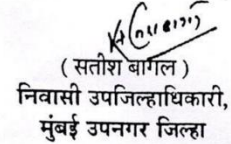 ( सतीश बागल )
निवासी उपजिल्हाधिकारी,
मुंबई उपनगर जिल्हा